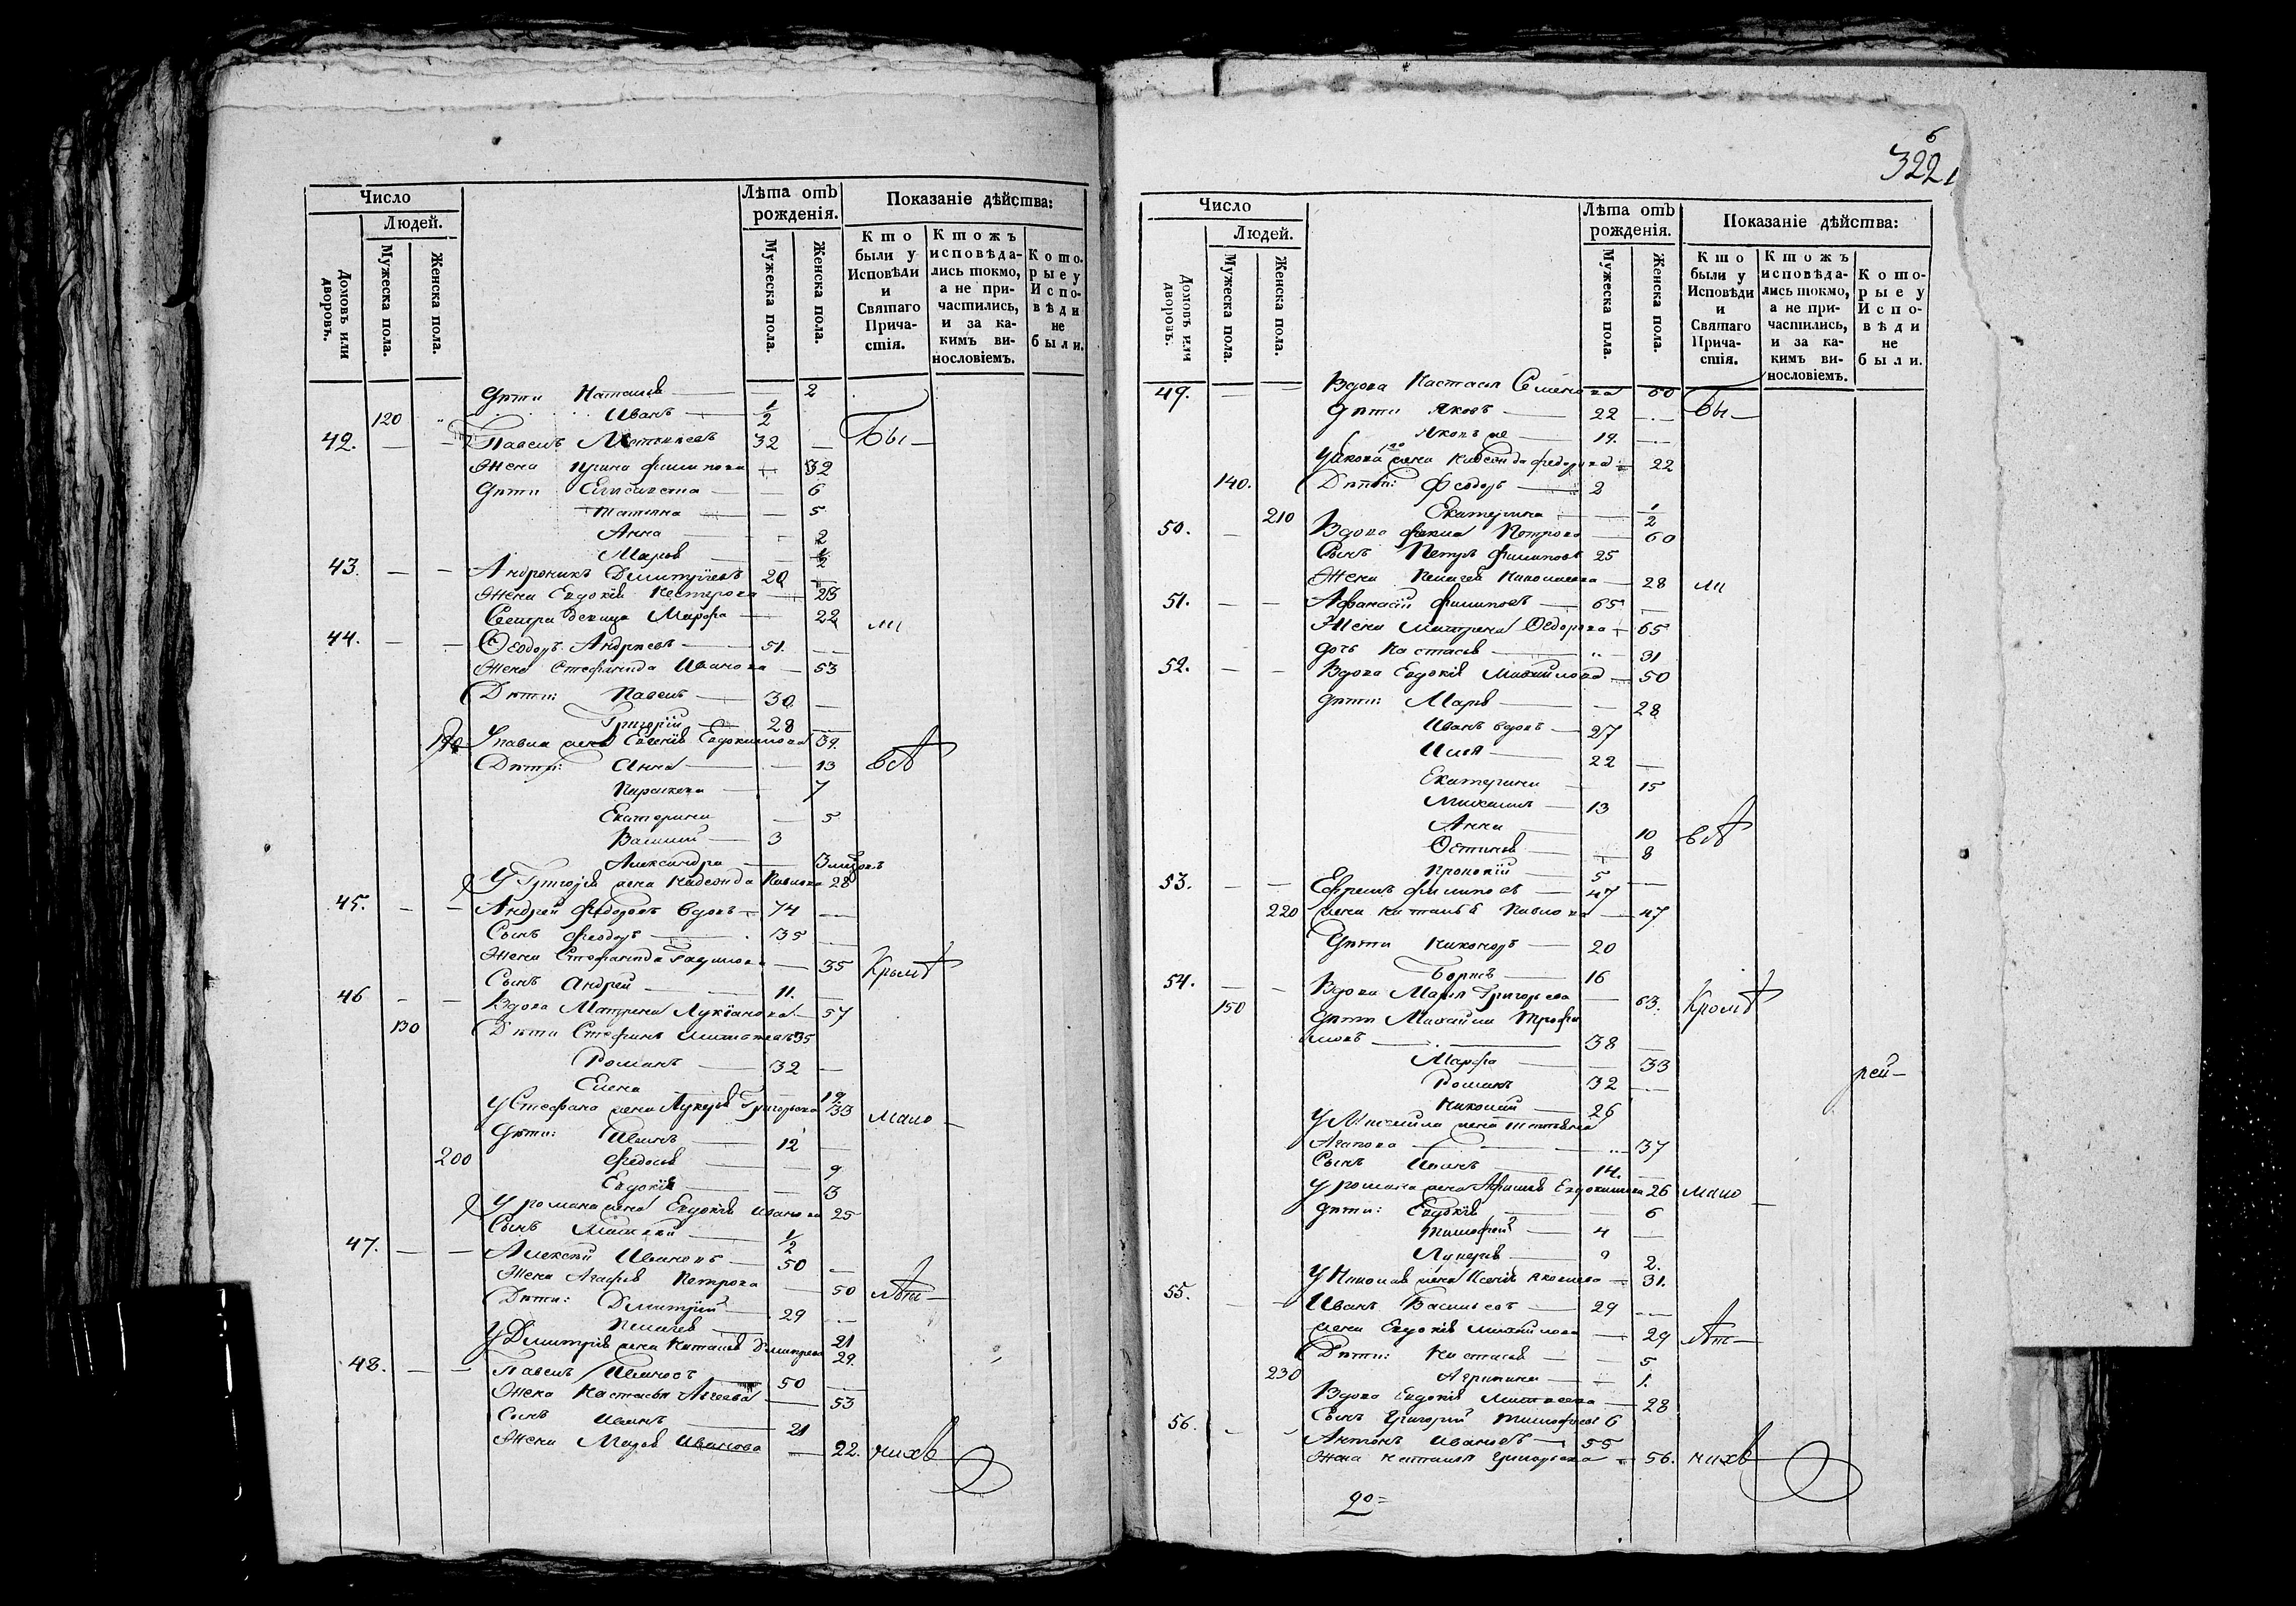 Число
Людей.
Домовъ или дворовъ.
Мужеска пола.
Женска пола.
Лѣта отъ рожденія.
Мужеска пола.
Женска пола.
Показаніе дѣйства:
Кто были у Исповѣди и Святаго Причастія.
Ктожъ исповѣдались токмо, а не причастились, и за какимъ винословіемъ.
Которые у Исповѣди не были.
дѣти Наталья — 2
120 Иванъ — 1/2
42. — — Павелъ — 32 — Бы—
Жена Ирина Филипова — 32
дѣти Елисавета — 6
Татьяна — 5
Анна — 2
Марья — 1/2
43. — — Андроникъ Дмитріевъ 20 —
Жена Евдокія Нестерова — 23
Сестра девица Марфа — 22 ли
44. — — Ѳеодоръ Андреевъ — 51. —
Жена Стефанида Иванова — 53
Дѣти: Павелъ — 30 —
Григорій — 28 —
190 У павла жена Евдокимова 39.
Дѣти: Анна — 13 всѣ
Параскева — 7
Екатерина — 5
Василій — 3
Александра — 3
У Григорія жена Надежда Павлова 28
45. — — Андрей Федоровъ вдовъ — 74 —
Сынъ Феодоръ — 35 —
Жена Стефанида — 35 Кромѣ
Сынъ Андрей — 11. —
46 — — Вдова Матрена Лукіанова — 57
130 Дѣти Стефанъ 35
Романъ — 32 —
Елена — 19
У Стефана жена Лукерья Григорьева 33 мало—
дѣти: Иванъ — 12 —
200 Федосья — 9
Евдокія — 3
У романа жена Евдокія Иванова 25
Сынъ — 1/2
47. — — Алексѣй Ивановъ — 50 —
Жена Агафья Петрова — 50 лѣт—
Дѣти: Дмитрій — 29 —
Пелагея — 21
У Дмитрія жена Наталья 29.
48. — — Павелъ Ивановъ 50 —
Жена Настасья — 53
Сынъ Иванъ — 21
Жена Марья Иванова — 22. нихъ
6
322
Число
Людей.
Домовъ или дворовъ.
Мужеска пола.
Женска пола.
Лѣта отъ рожденія.
Мужеска пола.
Женска пола.
Показаніе дѣйства:
Кто были у Исповѣди и Святаго Причастія.
Ктожъ исповѣдались токмо, а не причастились, и за какимъ винословіемъ.
Которые у Исповѣди не были.
49. — — Вдова Настасья Семенова 60
дѣти Яковъ — 22 — Бы—
Яковъ же — 19. —
У Якова 1го жена Надежда Федорова — 22
140. Дѣти: Феодоръ — 2
210 Екатерина — 1/2
50. — Вдова Фекла Петрова — 60
Сынъ Петръ Филиповъ 25
Жена Пелагея Николаева — 28 ли
51. — — Афанасій Филиповъ — 65 —
Жена Матрена Ѳедорова — 65
дочь Настасья — 31
52. — — Вдова Евдокія Михайлова — 50
дѣти: Марья — 28
Иванъ вдовъ — 27
Илья — 22 —
Екатерина — 15
Михаилъ — 13
Анна — 10 всѣ
Остинья — 8
Прокопій — 5 —
53. — — Ефремъ Филиповъ — 47
220 жена Наталья Павлова — 47
Дѣти Никоноръ — 20
Борисъ — 16
54. — — Вдова Марья Григорьева — 63. Кромѣ
150 Дѣти Михаилъ Трофи
мовъ — 38 —
Марфа — 33
рей—
Романъ 32 —
Николай — 26
У Михаила жена Татьяна
Агапова — 37
Сынъ Иванъ — 14. —
У романа жена Афимья Евдокимова 26 мало—
дѣти: Евдокія — 6
Тимофей — 4 —
Лукерья — 2.
У Николая жена Ксенія Яковлева — 31.
55. — — Иванъ Васильевъ — 29 —
жена Евдокія Михайлова — 29 лѣт—
Дѣти: Настасья — 5
230 Агрипина — 1.
Вдова Евдокія — 28
Сынъ Григорій Тимофеевъ 6
56. — — Антонъ Ивановъ — 55
Жена Наталья Григорьева — 56. нихъ